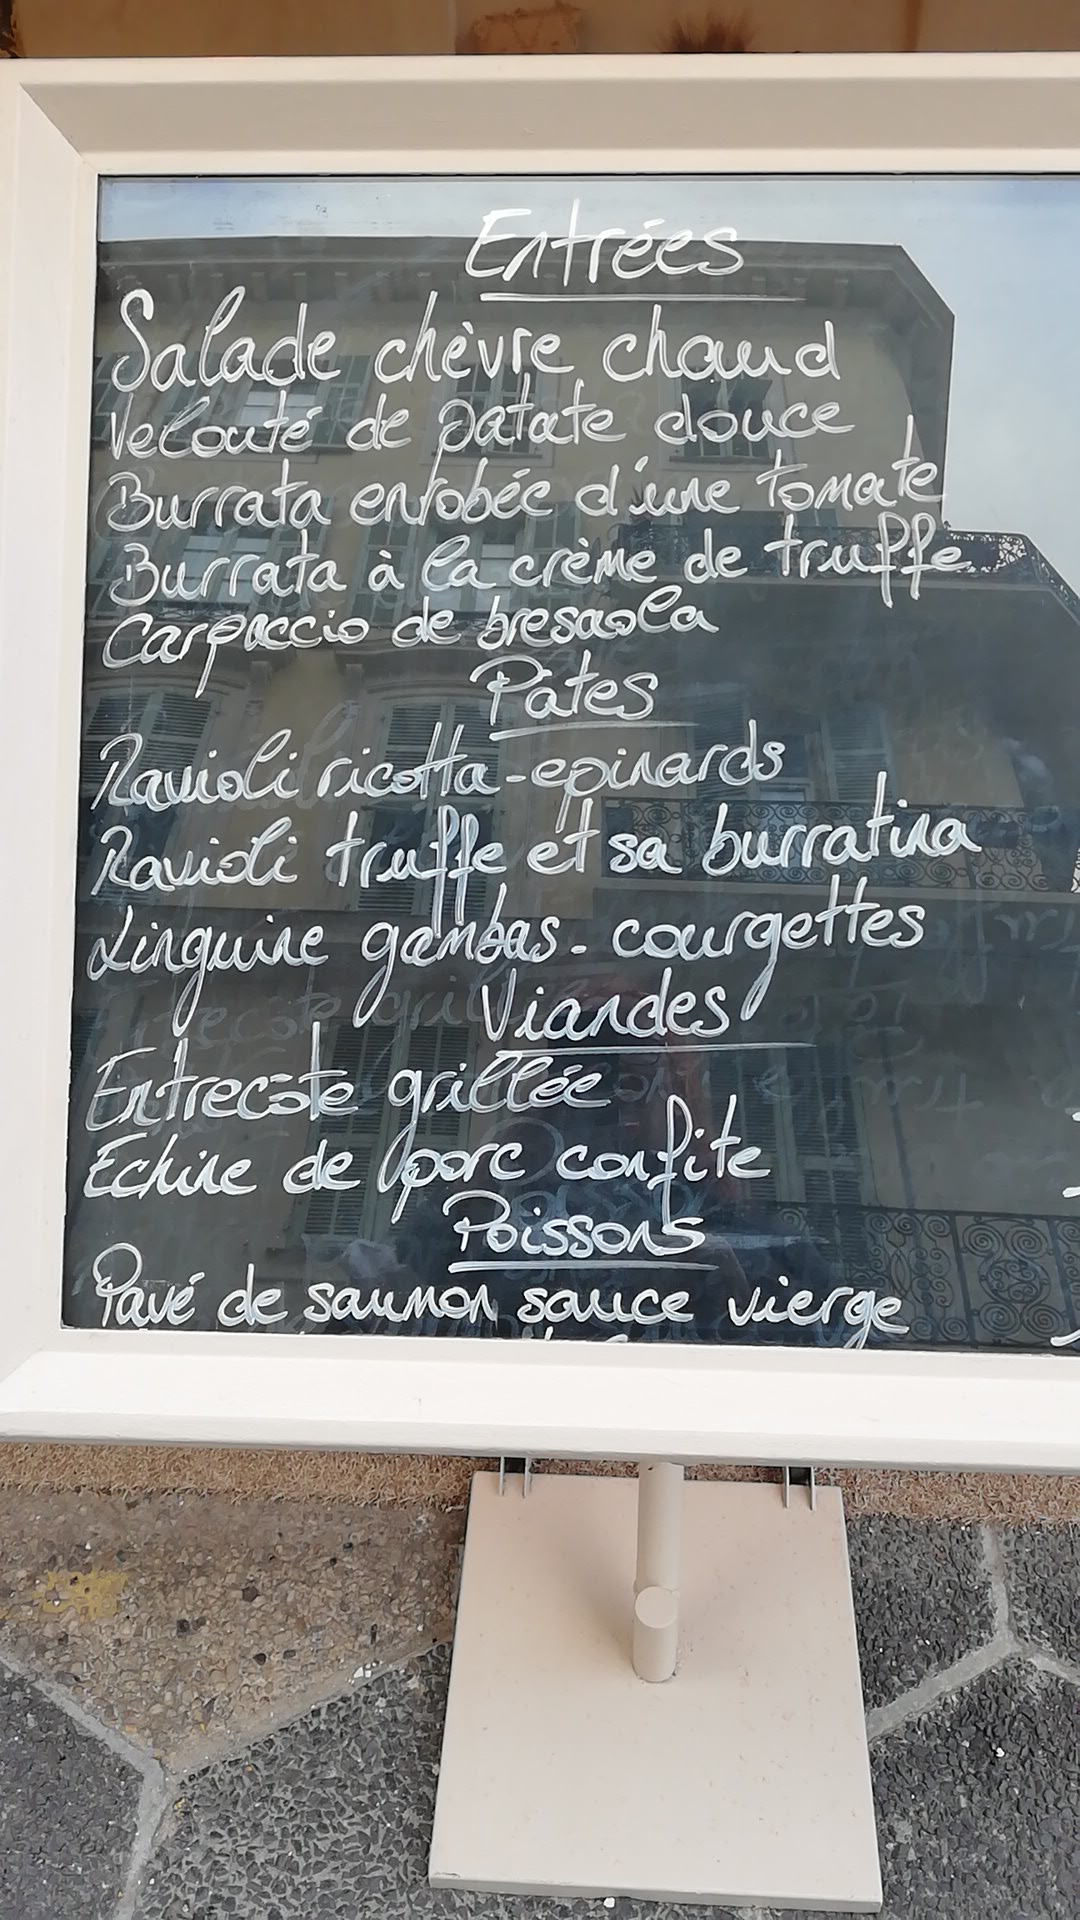 Entrées
Salade chèvre chaud
Velouté de patate douce
Burrata enrobée d'une tomate
Burrata à la crème de truffe
Carpaccio de bresaola
Pates
Ravioli ricotta-epinards
Ravioli truffe et sa burratina
Linguine gambas - courgettes
Viandes
Entrecôte grillée
Echine de porc confite
Poissons
Pavé de saumon sauce vierge